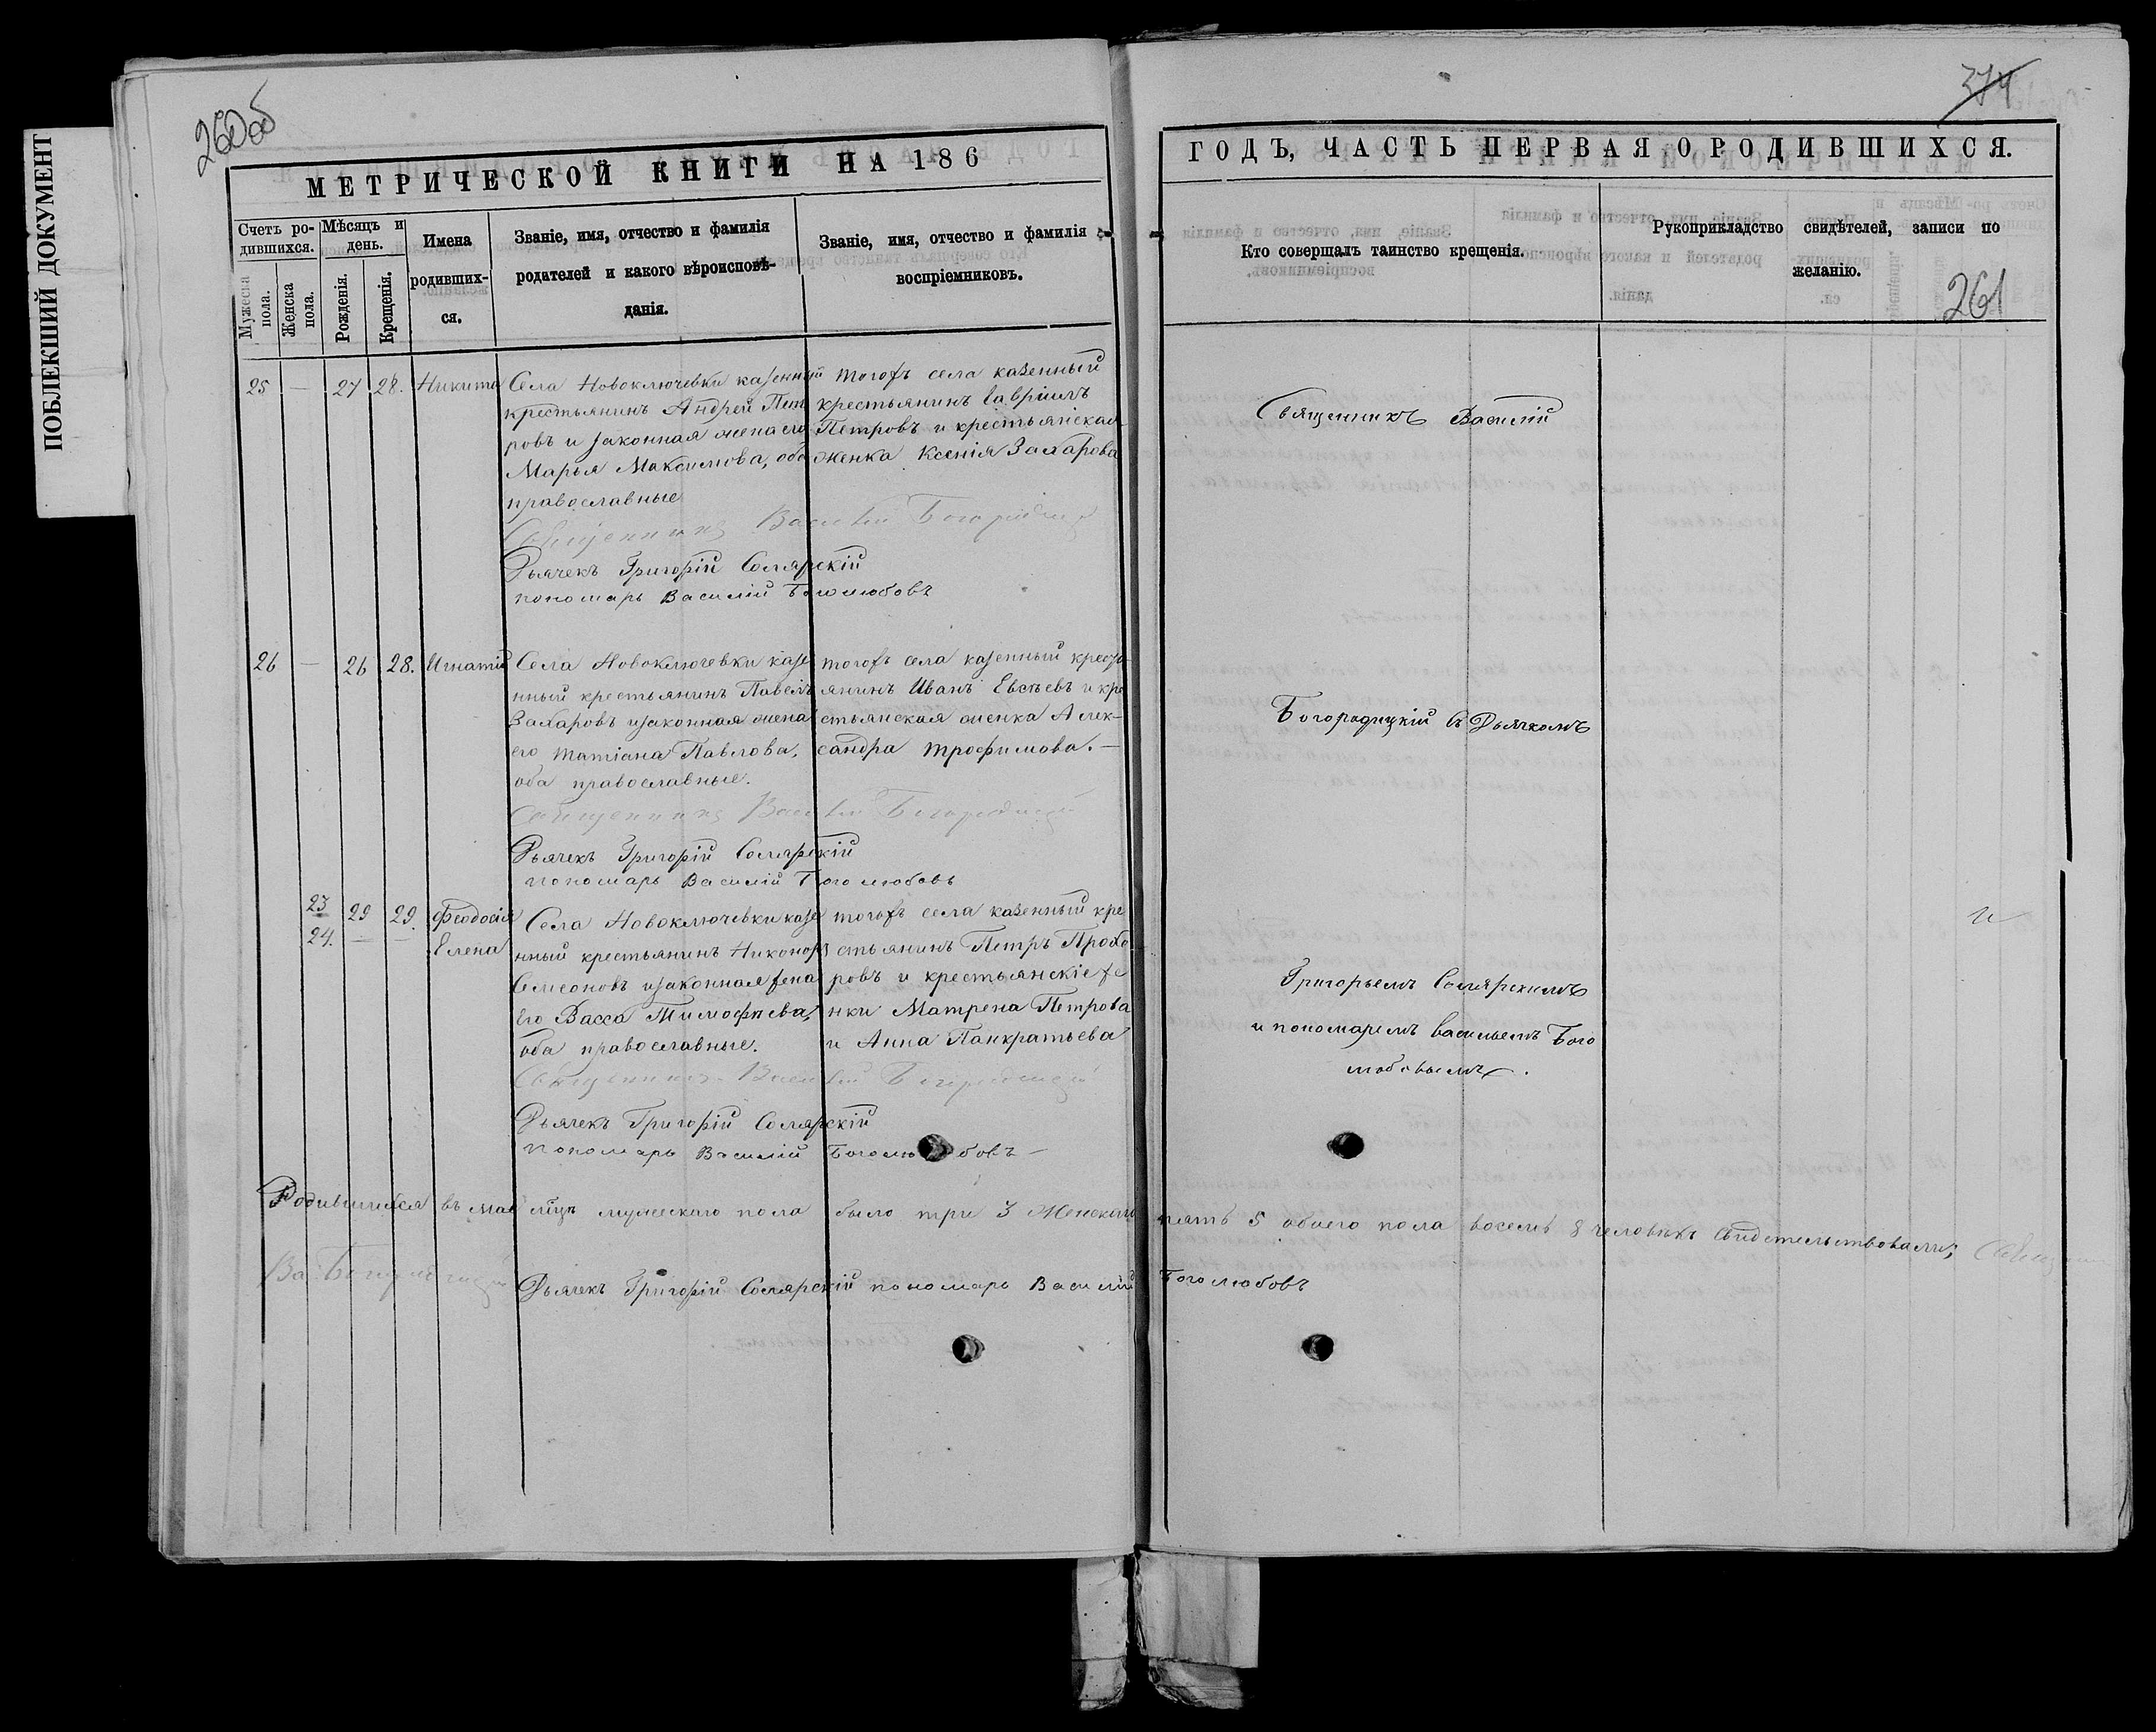 ПОБЛЕКШИЙ ДОКУМЕНТ
260об
МЕТРИЧЕСКОЙ КНИГИ НА 186
Счетъ ро-
дившихся.
Мужеска
пола.
Женска
пола.
Мѣсяцъ и
день.
Рожденія.
Крещенія.
Имена
родивших-
ся.
Званіе, имя, отчество и фамилія
родителей и какого вѣроисповѣ-
данія.
Званіе, имя, отчество и фамилія
воспріемниковъ.
25 — 27 28. Никита
Села Новоключевки казенный
крестьянинъ Андрей Пет
ровъ и законная жена его
Марья Максимова, оба
православные
тогожъ села казенный
крестьянинъ Гавріилъ
Петровъ и крестьянская
женка Ксенія Захарова
Священникъ Василій Богородицкій
Дьячекъ Григорій Солярскій
пономарь Василій Боголюбовъ
26 — 26 28. Игнатій
Села Новоключевки казе
нный крестьянинъ Павелъ
Захаровъ и законная жена
его Татіана Павлова,
оба православные.
тогожъ села казенный кресть
янинъ Иванъ Евсѣевъ и кре
стьянская женка Алек-
сандра Трофимова. —
Священникъ Василій Богородицкій
Дьячекъ Григорій Солярскій
пономарь Василій Боголюбовъ
23 29 29. Феодосія
24. — — Елена
Села Новоключевки казе
нный крестьянинъ Никоноръ
Семеоновъ и законная жена
его Васса Тимофѣева,
оба православные.
тогожъ села казенный кре
стьянинъ Петръ Прохо
ровъ и крестьянскіе же
нки Матрена Петрова
и Анна Панкратьева
Священникъ Василій Богородицкій
Дьячекъ Григорій Солярскій
пономарь Василій Боголюбовъ —
Родившихся въ маѣ мцѣ мужескаго пола было три 3 Женскаго пять 5 обоего пола восемь 8 человѣкъ свидетельствовали; Священникъ
Ва. Богородицкій Дьячекъ Григорій Солярскій пономарь Василій Боголюбовъ
374
ГОДЪ, ЧАСТЬ ПЕРВАЯ О РОДИВШИХСЯ.
Кто совершалъ таинство крещенія.
Рукоприкладство свидѣтелей, записи по
желанію.
261
Священникъ Василій
Богородицкій съ Дьячкомъ
Григорьемъ Солярскимъ
и пономаремъ Васильемъ Бого
любовымъ.